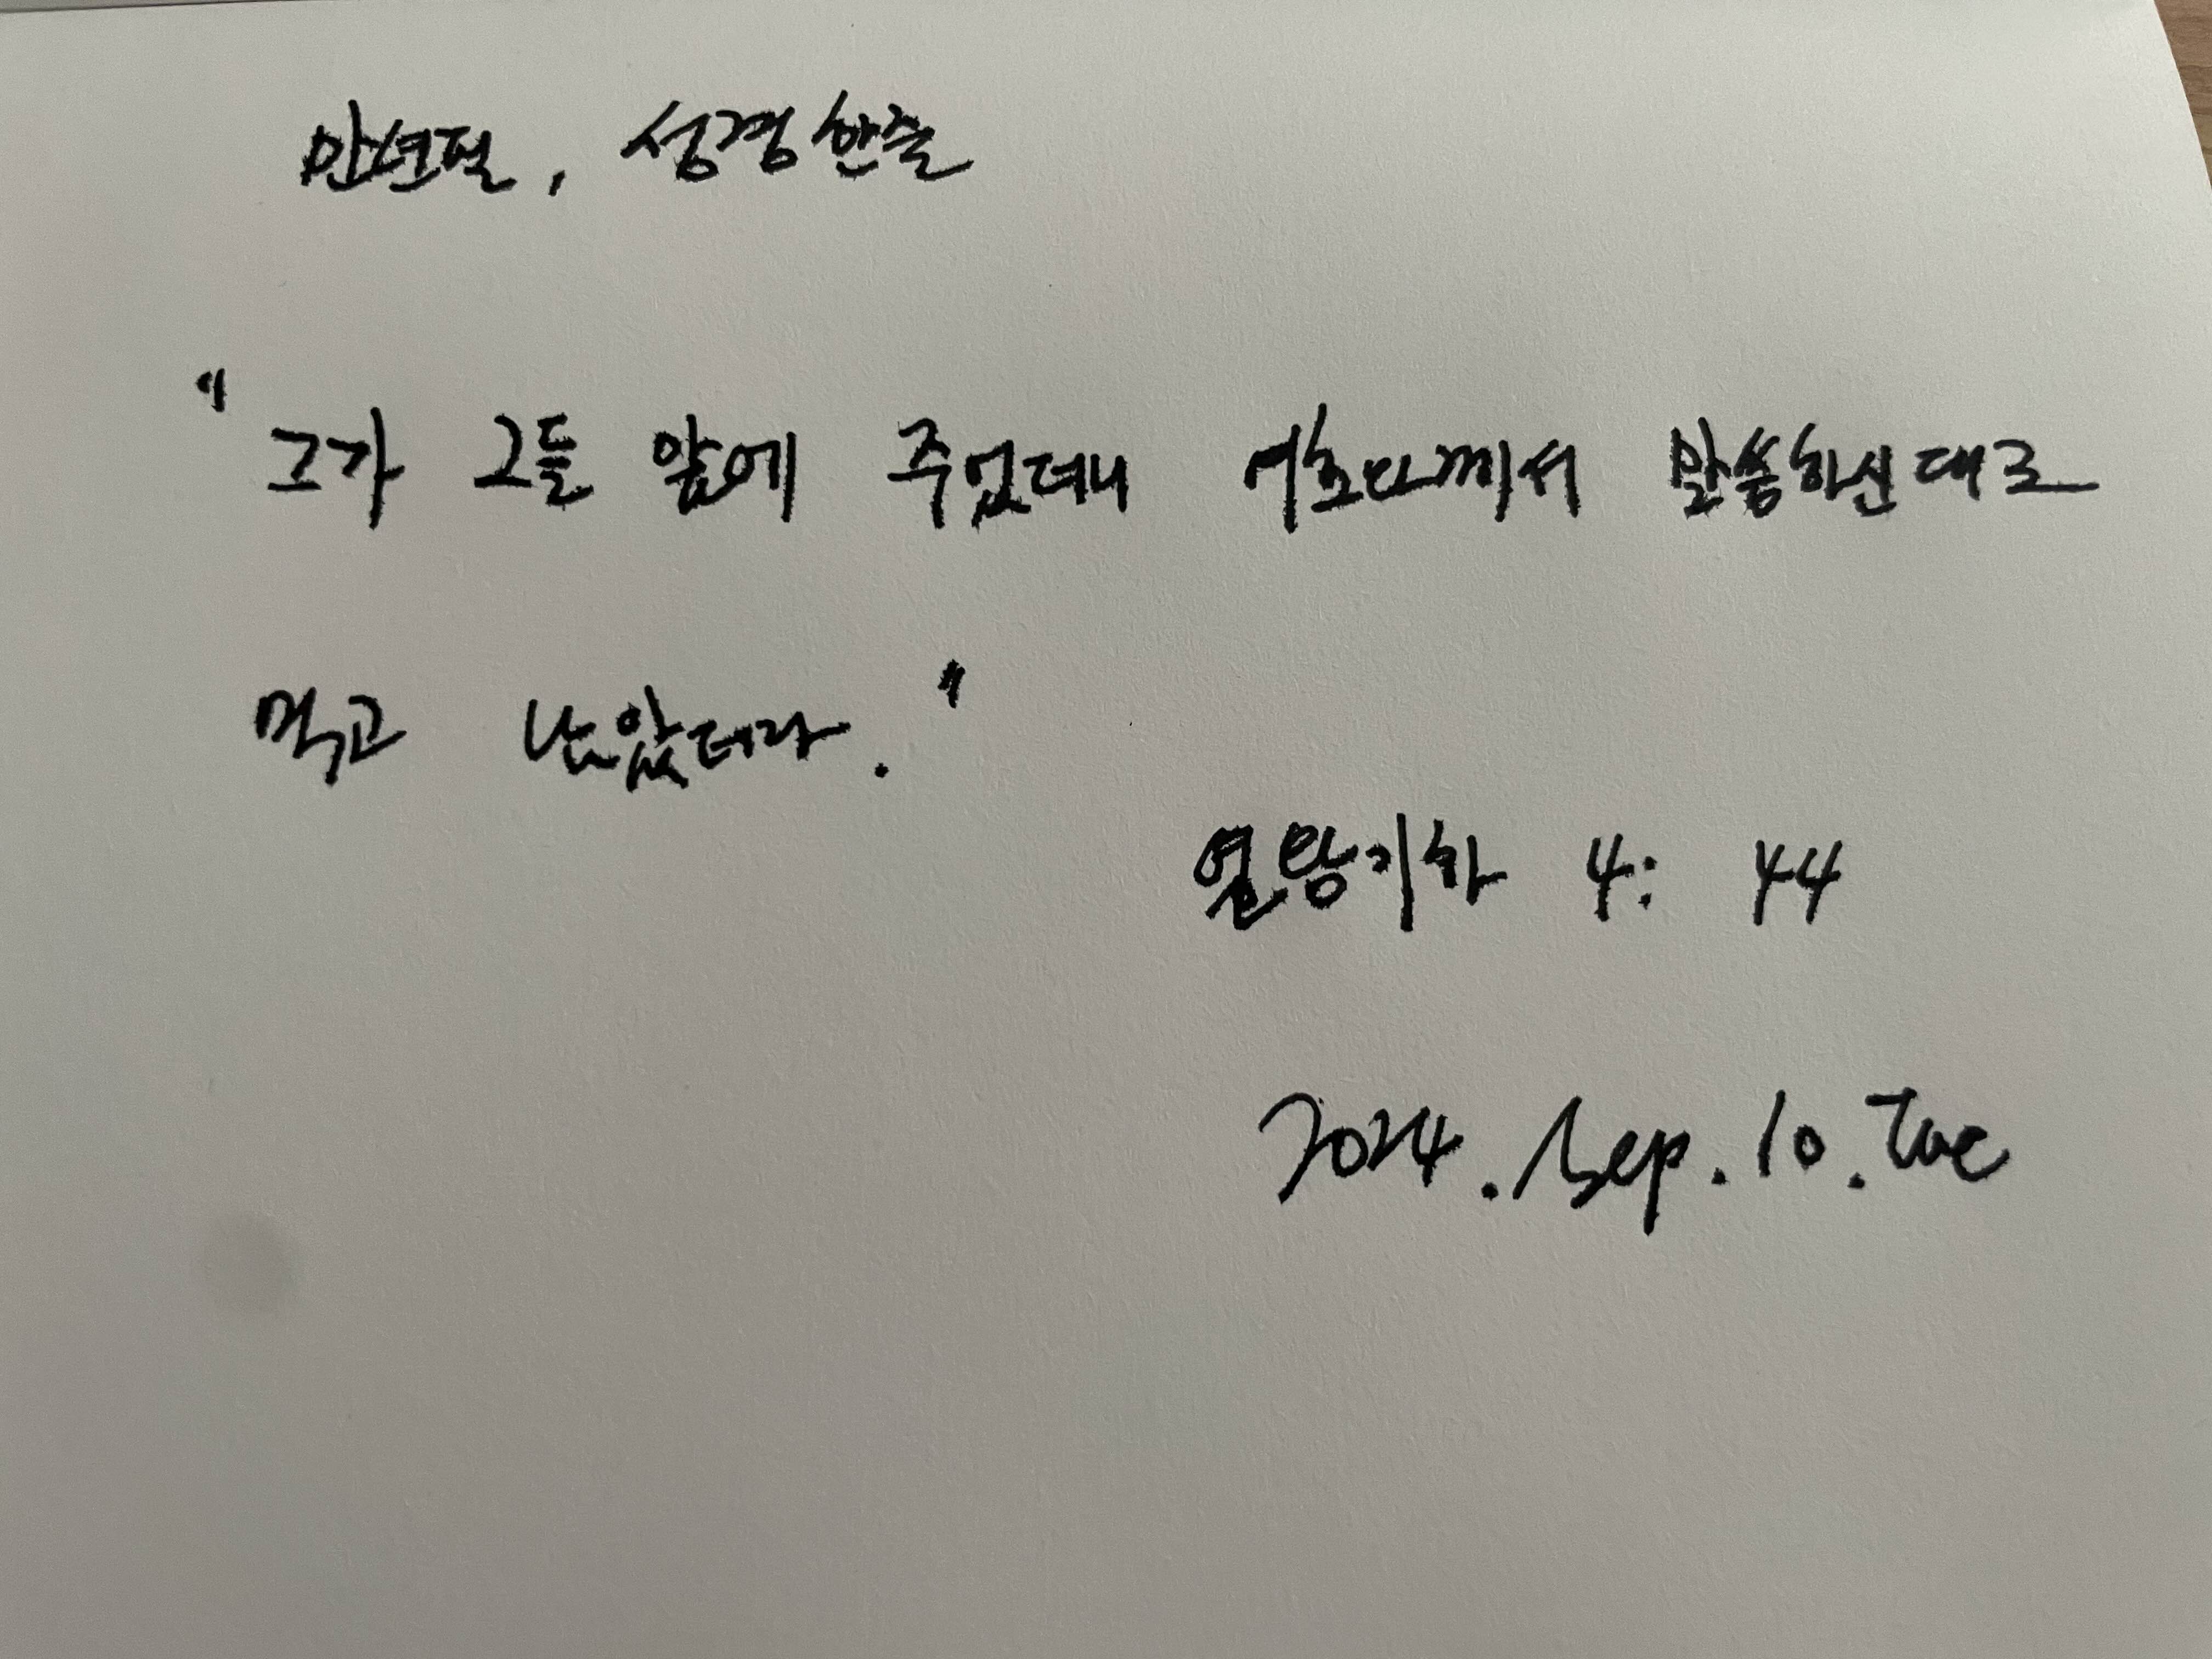 만년필, 성경한줄
"그가 그들 앞에 주었더니 여호와께서 말씀하신대로
먹고 남았더라."
열왕기하 4: 44
2024. Sep. 10. Tue